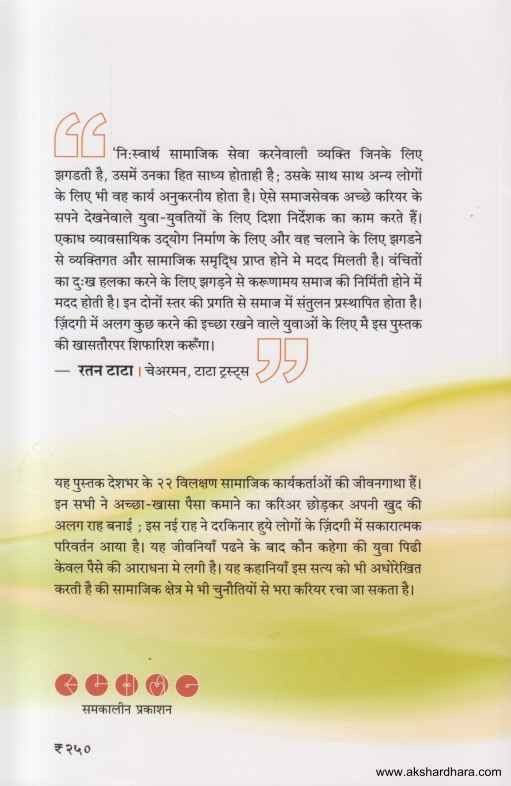 'नि:स्वार्थ सामाजिक सेवा करनेवाली व्यक्ति जिनके लिए
झगडती है, उसमें उनका हित साध्य होताही है; उसके साथ साथ अन्य लोगों
के लिए भी वह कार्य अनुकरनीय होता है। ऐसे समाजसेवक अच्छे करियर के
सपने देखनेवाले युवा-युवतियों के लिए दिशा निर्देशक का काम करते हैं।
एकाध व्यावसायिक उद्‌योग निर्माण के लिए और वह चलाने के लिए झगडने
से व्यक्तिगत और सामाजिक समृद्‌धि प्राप्त होने मे मदद मिलती है। वंचितों
का दुःख हलका करने के लिए झगड़ने से करूणामय समाज की निर्मिती होने में
मदद होती है। इन दोनों स्तर की प्रगति से समाज में संतुलन प्रस्थापित होता है।
ज़िंदगी में अलग कुछ करने की इच्छा रखने वाले युवाओं के लिए मै इस पुस्तक
की खासतौरपर शिफारिश करूँगा।
— रतन टाटा । चेअरमन, टाटा ट्रस्ट्स
यह पुस्तक देशभर के २२ विलक्षण सामाजिक कार्यकर्ताओं की जीवनगाथा हैं।
इन सभी ने अच्छा-खासा पैसा कमाने का करिअर छोड़कर अपनी खुद की
अलग राह बनाई ; इस नई राह ने दरकिनार हुये लोगों के ज़िंदगी में सकारात्मक
परिवर्तन आया है। यह जीवनियाँ पढने के बाद कौन कहेगा की युवा पिढी
केवल पैसे की आराधना मे लगी है। यह कहानियाँ इस सत्य को भी अधोरेखित
करती है की सामाजिक क्षेत्र मे भी चुनौतियों से भरा करियर रचा जा सकता है।
समकालीन प्रकाशन
₹२५०
www.akshardhara.com